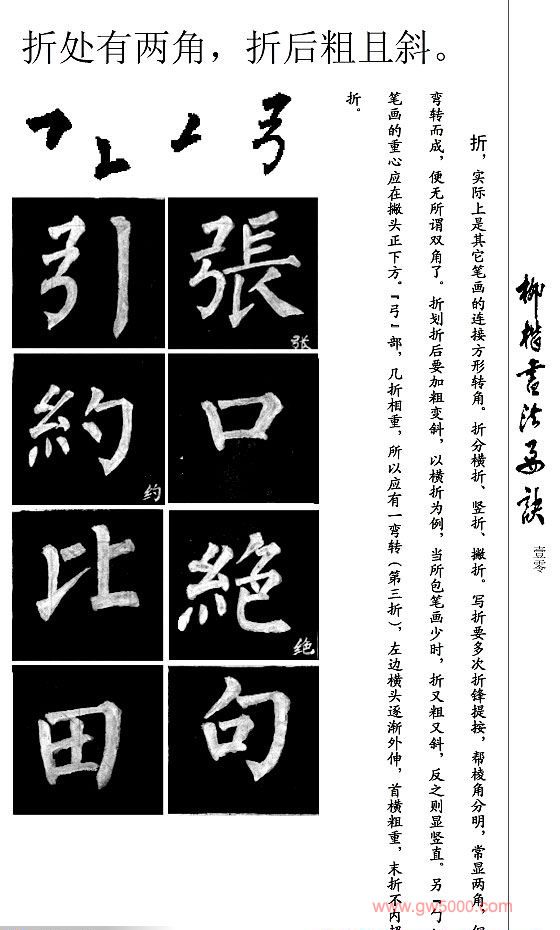 折处有两角，折后粗且斜。
柳楷書法要訣
壹零
折，实际上是其它笔画的连接方形转角。折分横折、竖折、撇折。写折要多次折锋提按，帮棱角分明，常显两角，
弯转而成，便无所谓双角了。折划折后要加粗变斜，以横折为例，当所包笔画少时，折又粗又斜，反之则显竖直。另『勹
笔画的重心应在撇头正下方。『弓』部，几折相重，所以应有一弯转（第三折），左边横头逐渐外伸，首横粗重，末折不内
折。
弓
張
张
引
口
約
约
絶
绝
比
句
田
www.gw5000.com